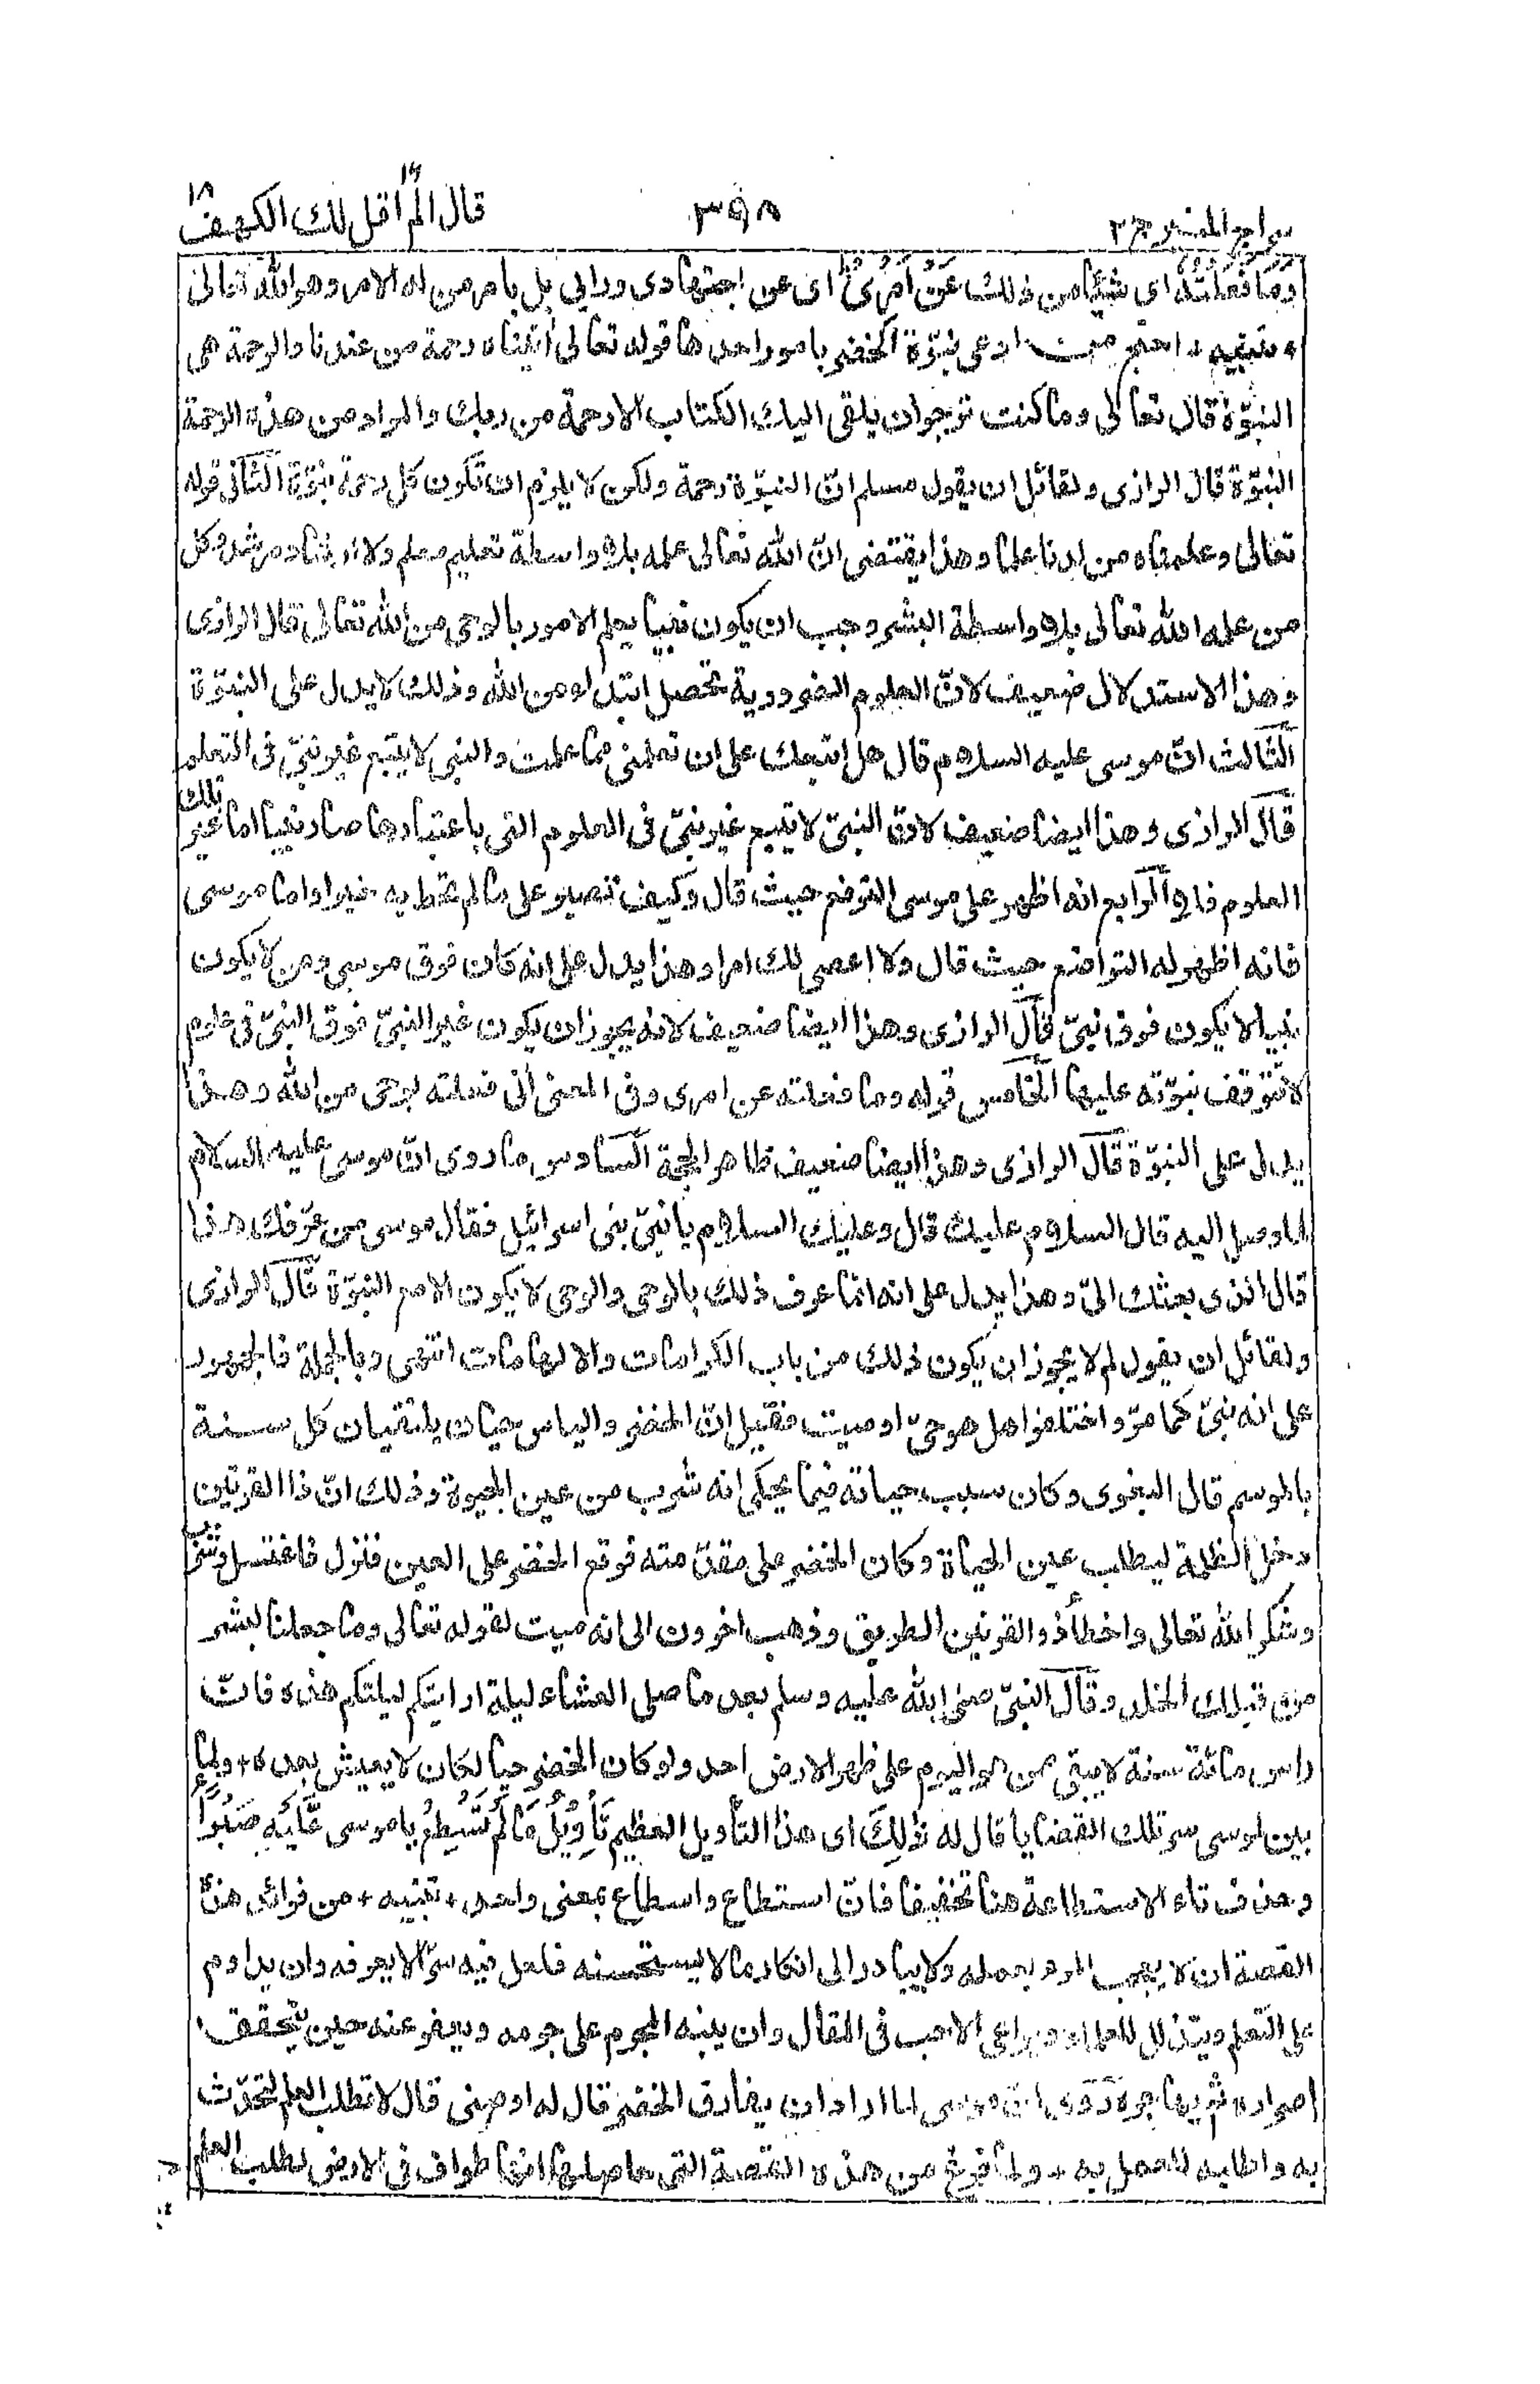 سراج المنير ج ٢ ٣٩٨ قال الم اقل لك ١٦ الكهف ١٨
وَمَا فَعَلْتُهُ اى شيئا من ذلك عَنْ اَمْرِىْ اى عن اجتهادى ورايى بل بامر من له الامر وهو الله تعالى
٭ تنبيه ٭ احتج من ادعى نبوّة الخضر بامور احدها قوله تعالى اٰتيناه رحمة من عندنا والرحمة هى
النبوّة قال تعالى وما كنت ترجوا ان يلقى اليك الكتاب الا رحمة من ربك والمراد من هذه الرحمة
النبوّة قال الرازى ولقائل ان يقول مسلم انّ النبوّة رحمة ولكن لا يلزم ان تكون كل رحمة نبوّة الثانى قوله
تعالى وعلمناه من لدنا علما وهذا يقتضى انّ الله تعالى علمه بلا واسطة تعليم معلم ولا ارشاد مرشد وكل
من علمه الله تعالى بلا واسطة البشر وجب ان يكون نبيا يعلم الامور بالوحى من الله تعالى قال الرازى
وهذا الاستدلال ضعيف لانّ العلوم الضرورية تحصل ابتداء من الله وذلك لا يدل على النبوّة
الثالث انّ موسى عليه السلام قال هل اتبعك على ان تعلمنى مما علمت والنبى لا يتبع غير نبىّ فى التعلم
قال الرازى وهذا ايضا ضعيف لانّ النبىّ لا يتبع غير نبىّ فى العلوم التى باعتبارها صار نبيا اما غير تلك
العلوم فلا الرابع انه اظهر على موسى الترفع حيث قال وكيف تصبر على ما لم تحط به خبرا واما موسى
فانه اظهر له التواضع حيث قال ولا اعصى لك امرا وهذا يدل على انه كان فوق موسى ومن لا يكون
نبيا لا يكون فوق نبىّ قال الرازى وهذا ايضا ضعيف لانه يجوز ان يكون غير النبىّ فوق النبىّ فى علوم
لا تتوقف نبوّته عليها الخامس قوله وما فعلته عن امرى وفى المعنى انى فعلته بوحى من الله وهذا
يدل على النبوّة قال الرازى وهذا ايضا ضعيف ظاهر الحجة السادس ما روى انّ موسى عليه السلام
لما وصل اليه قال السلام عليك قال وعليك السلام يا نبىّ بنى اسرائيل فقال موسى من عرّفك هذا
قال الذى بعثك الىّ وهذا يدل على انه انما عرف ذلك بالوحى والوحى لا يكون الا مع النبوّة قال الرازى
ولقائل ان يقول لم لا يجوز ان يكون ذلك من باب الكرامات والالهامات انتهى وبالجملة فالجمهور
على انه نبىّ كما مرّ واختلفوا هل هو حىّ او ميت فقيل انّ الخضر والياس حيان يلتقيان كل سنة
بالموسم قال البغوى وكان سبب حياته فيما يحكى انه شرب من عين الحيوة وذلك انّ ذا القرنين
دخل الظلمة ليطلب عين الحياة وكان الخضر على مقدّمته فوقع الخضر على العين فنزل فاغتسل وشرب
وشكر الله تعالى واخطأ ذو القرنين الطريق وذهب اخرون الى انه ميت لقوله تعالى وما جعلنا لبشر
من قبلك الخلد وقال النبىّ صلى الله عليه وسلم بعد ما صلى العشاء ليلة ارايتكم ليلتكم هذه فانّ
راس مائة سنة لا يبقى ممن هو اليوم على ظهر الارض احد ولو كان الخضر حيا لكان لا يعيش بعده ٭ ولما
بين لموسى سر تلك القضايا قال له ذٰلِكَ اى هذا التأويل العظيم تَأْوِيْلُ مَا لَمْ تَسْطِعْ يا موسى عَّلَيْهِ صَبْرًا
وحذف تاء الاستطاعة هنا تخفيفا فانّ استطاع واسطاع بمعنى واحد ٭ تنبيه ٭ من فوائد هذه
القصة ان لا يعجب المرء بعمله ولا يبادر الى انكار ما لا يستحسنه فلعل فيه سرّا لا يعرفه وان يداوم
على التعلم ويتذلل للعلماء ويراعى الادب فى المقال وان ينبه المجرم على جرمه ويعفو عنه حين يتحقق
اصراره ثم يهاجره روى انّ موسى لما اراد ان يفارق الخضر قال له اوصنى قال لا تطلب العلم لتحدّث
به واطلبه للعمل به ٭ ولما فرغ من هذه القصة التى حاصلها انها طواف فى الارض لطلب العلم